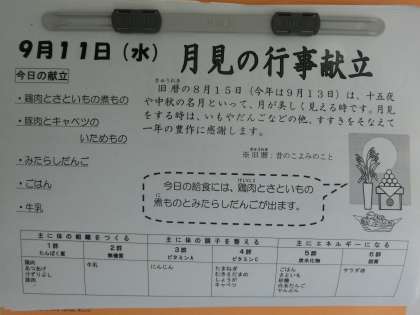 9月11日（水） 月見の行事献立
今日の献立
・鶏肉とさといもの煮もの
・豚肉とキャベツの
いためもの
・みたらしだんご
・ごはん
・牛乳
きゅうれき
旧暦の8月15日（今年は9月13日）は、十五夜
や中秋の名月といって、月が美しく見える時です。月見
をする時は、いもやだんごなどの他、すすきをそなえて
一年の豊作に感謝します。
きゅうれき
※旧暦：昔のこよみのこと
今日の給食には、鶏肉とさといもの
煮ものとみたらしだんごが出ます。
主に体の組織をつくる 主に体の調子を整える 主にエネルギーになる
1群 2群 3群 4群 5群 6群
たんぱく質 無機質 ビタミンA ビタミンC 炭水化物 脂質
鶏肉 牛乳 にんじん たまねぎ ごはん サラダ油
あつあげ むきえだまめ さといも
しょうが 砂糖
豚肉 キャベツ 白玉だんご
でんぷん